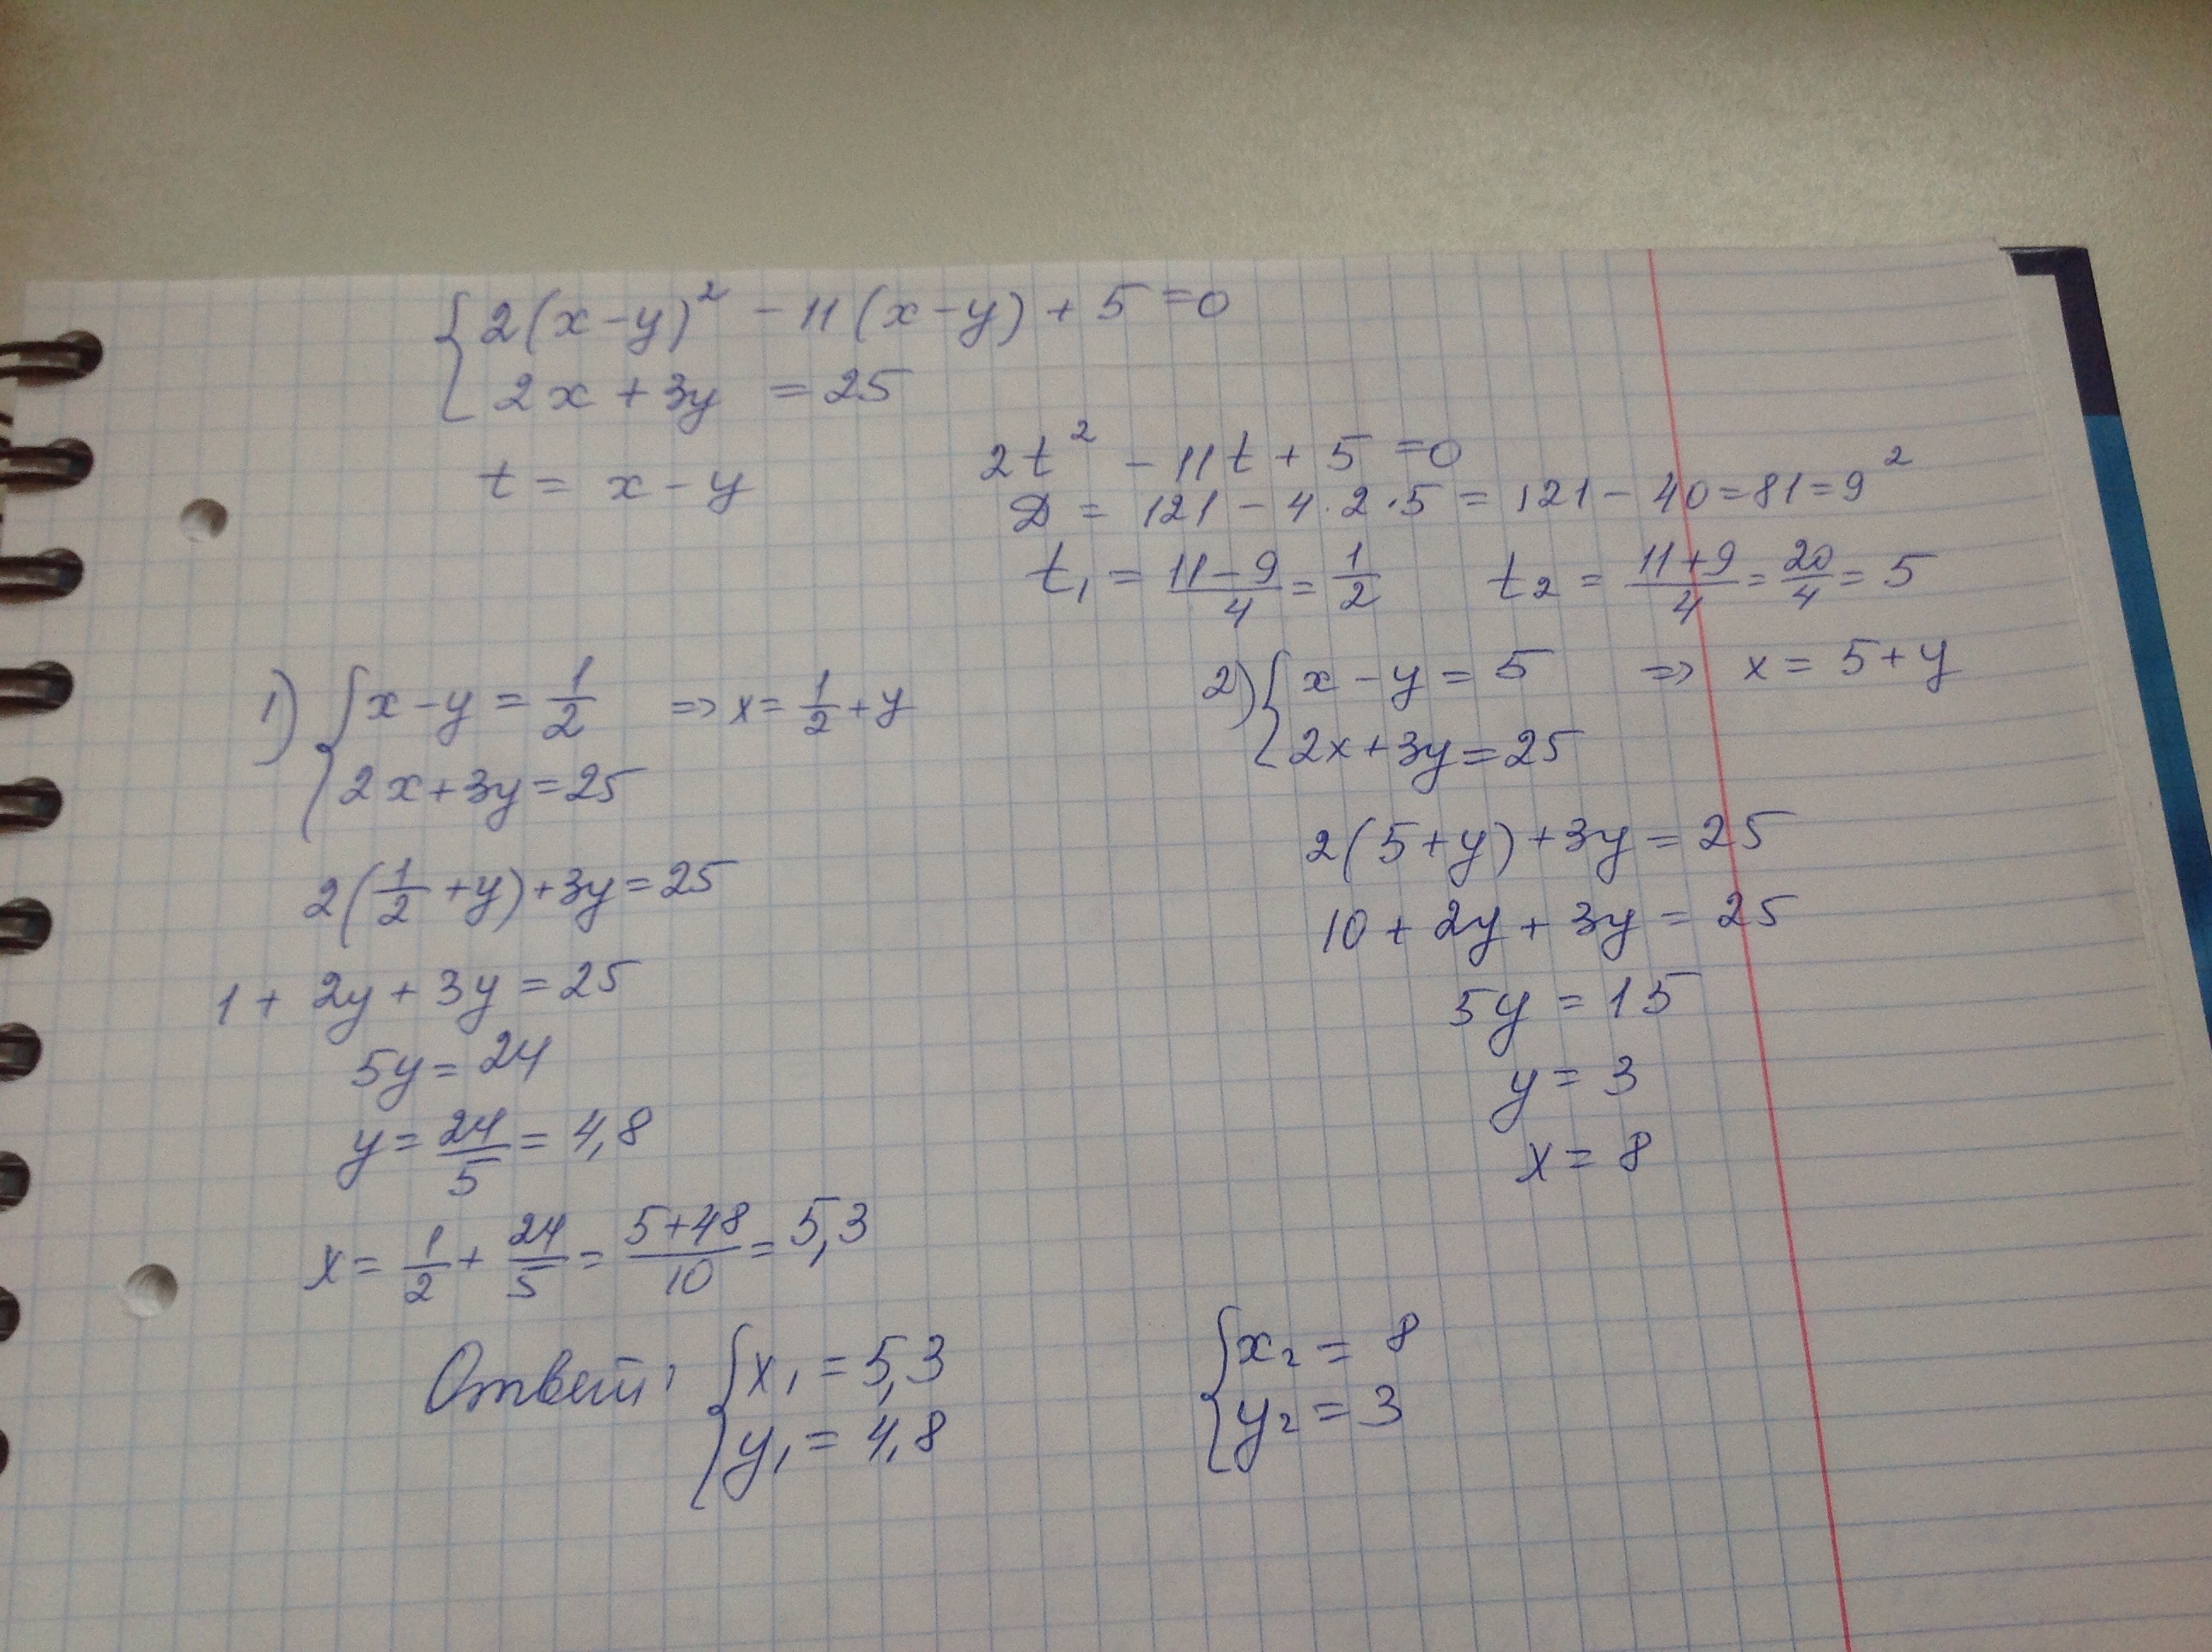 { 2(x-y)² - 11(x-y) + 5 = 0
2x + 3y = 25
t = x - y
2t² - 11t + 5 = 0
D = 121 - 4·2·5 = 121 - 40 = 81 = 9²
t₁ = (11-9)/4 = 1/2 t₂ = (11+9)/4 = 20/4 = 5
1) { x - y = 1/2 => x = 1/2 + y
2x + 3y = 25
2(1/2 + y) + 3y = 25
1 + 2y + 3y = 25
5y = 24
y = 24/5 = 4,8
x = 1/2 + 24/5 = (5+48)/10 = 5,3
2) { x - y = 5 => x = 5 + y
2x + 3y = 25
2(5 + y) + 3y = 25
10 + 2y + 3y = 25
5y = 15
y = 3
x = 8
Ответ: { x₁ = 5,3
y₁ = 4,8
{ x₂ = 8
y₂ = 3